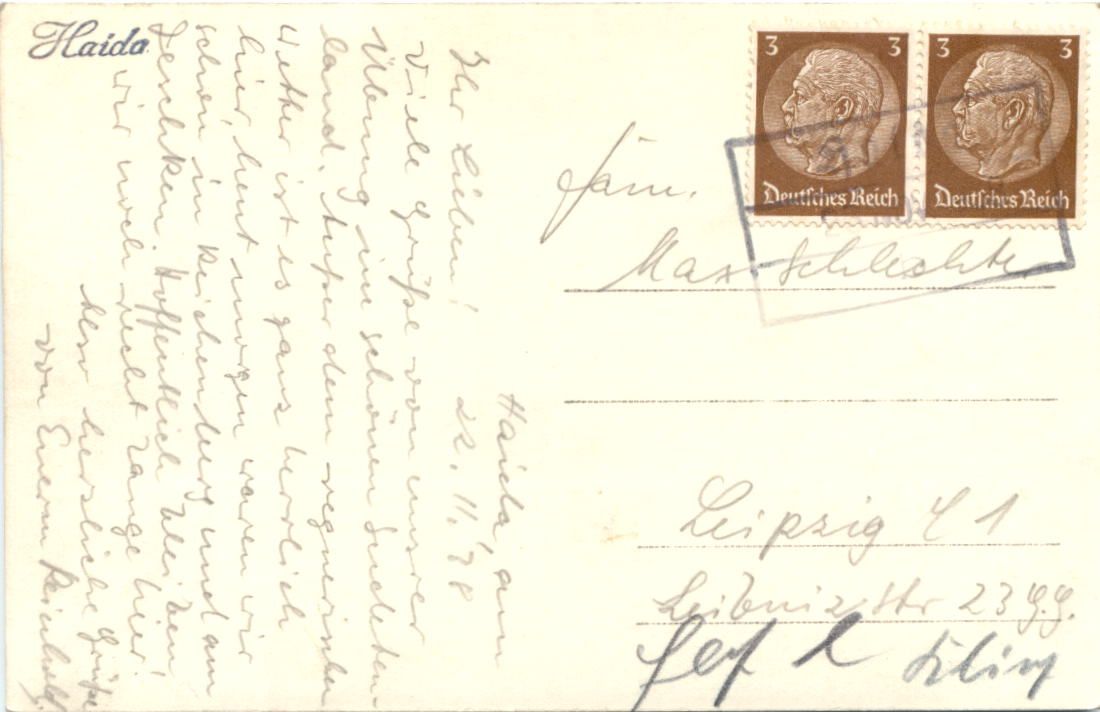 Haida
Haida am
22. 11. 38
Ihr Lieben!
Viele Grüße von unsrer
Übung im schönen Sudeten-
land. Außer dem regnerischen
Wetter ist es ganz herrlich
hier, heut morgen waren wir
schon in Reichenberg und am
Jeschken. Hoffentlich bleiben
wir noch recht lange hier!
herzliche Grüße
von Euerm
3 3
Deutsches Reich
3 3
Deutsches Reich
Fam.
Max Schlechte
Leipzig C 1
Leibnizstr 23